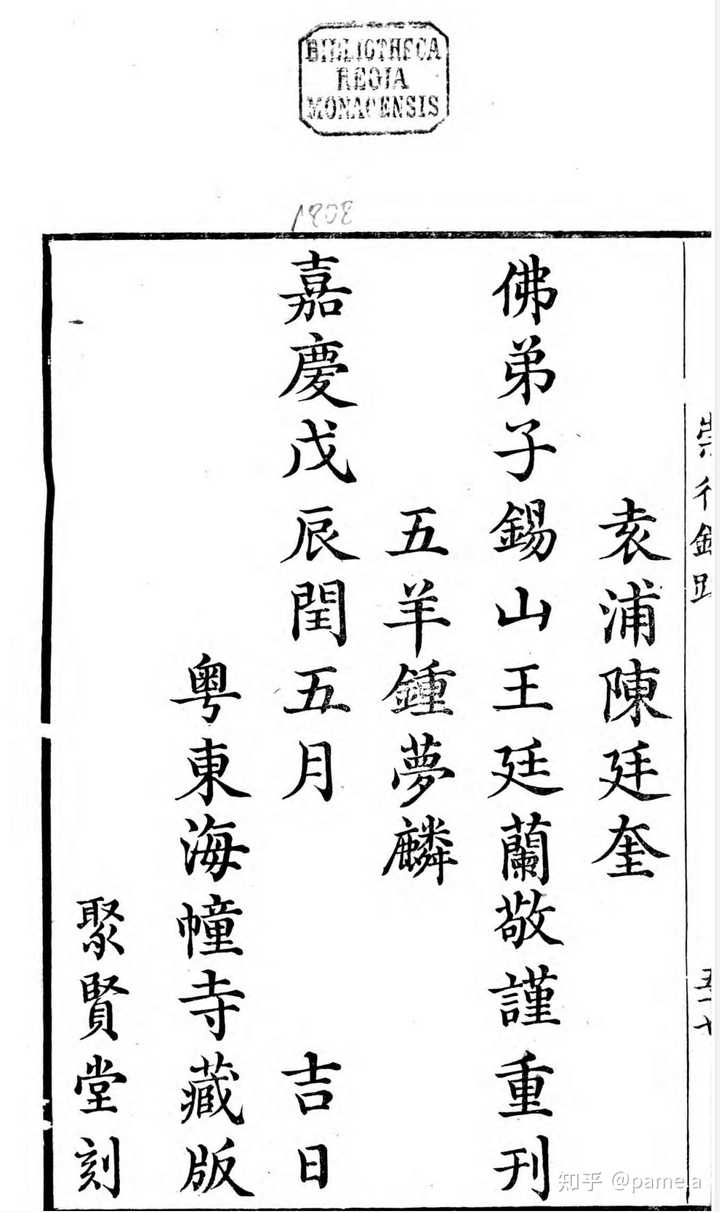 BIBLIOTHECA
REGIA
MONACENSIS
1808
崇行錄
袁浦陳廷奎
佛弟子錫山王廷蘭敬謹重刊
五羊鍾夢麟
嘉慶戊辰閏五月 吉日
粵東海幢寺藏版
聚賢堂刻
知乎 @pame.a